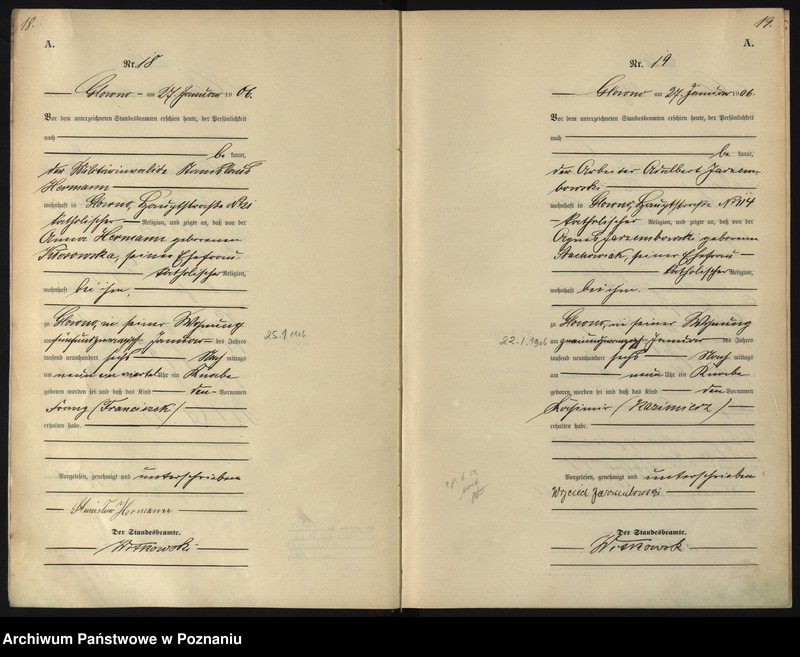 18.
A.
Nr. 18
Glowno am 27. Januar 1906.
Vor dem unterzeichneten Standesbeamten erschien heute, der Persönlichkeit
nach
be kannt,
der Militärinvalide Stanislaus
Hermann
wohnhaft in Glowno, Hauptstraße N. 21
katholischer Religion, und zeigte an, daß von der
Anna Hermann geborenen
seiner Ehefrau
katholischer Religion,
wohnhaft bei ihm,
zu Glowno, in seiner Wohnung
am fünfundzwanzigsten Januar des Jahres
tausend neunhundert sechs Nach mittags
um neun ein viertel Uhr ein Knabe
geboren worden sei und daß das Kind den Vornamen
Franz (Franciszek)
erhalten habe.
Vorgelesen, genehmigt und unterschrieben
Stanisław Hermann
Der Standesbeamte.
Witkowski
25.1.1906
19.
A.
Nr. 19
Glowno am 27. Januar 1906.
Vor dem unterzeichneten Standesbeamten erschien heute, der Persönlichkeit
nach
be kannt,
der Arbeiter Adalbert Jarzem-
bowski
wohnhaft in Glowno, Hauptstraße N.
katholischer Religion, und zeigte an, daß von der
Agnes Jarzembowski geborenen
Stachowiak, seiner Ehefrau
katholischer Religion,
wohnhaft bei ihm.
zu Glowno, in seiner Wohnung
am zweiundzwanzigsten Januar des Jahres
tausend neunhundert sechs Nach mittags
um neun Uhr ein Knabe
geboren worden sei und daß das Kind den Vornamen
Kasimir (Kazimierz)
erhalten habe.
Vorgelesen, genehmigt und unterschrieben
Wojciech Jarzembowski
Der Standesbeamte.
Witkowski
22.1.1906
Archiwum Państwowe w Poznaniu